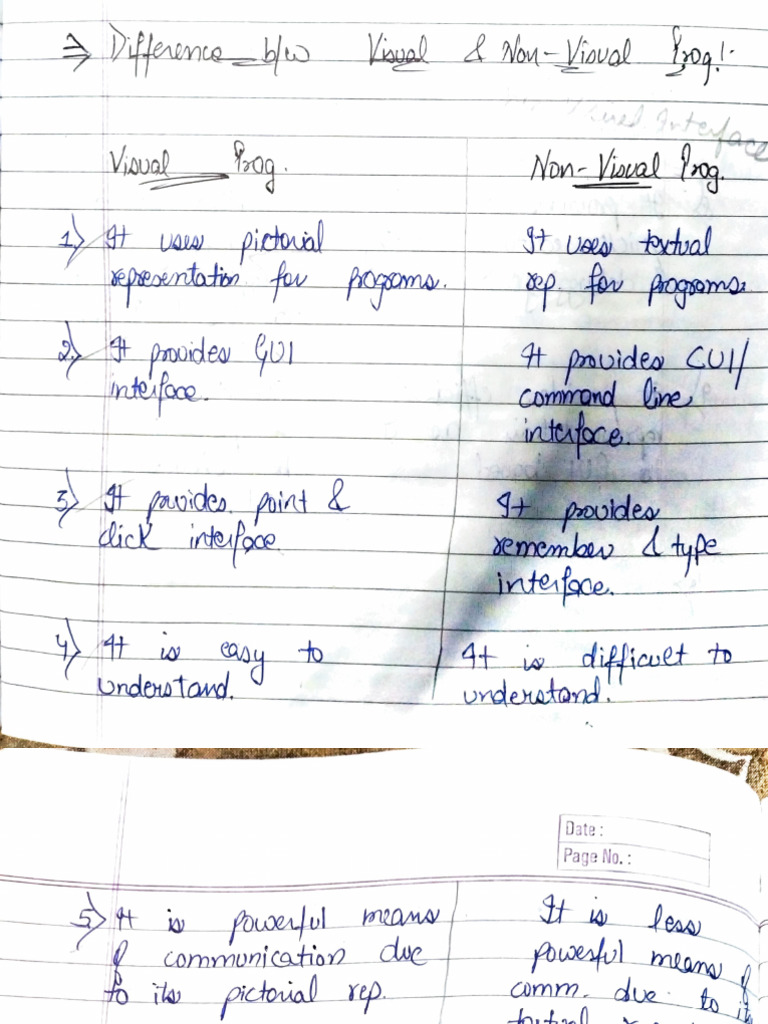 ⇒ Difference b/w Visual & Non-Visual Prog!-
Interface
Visual Prog.
Non-Visual Prog.
1) It uses pictorial
representation for programs.
It uses textual
rep. for programs.
2) It provides GUI
interface.
It provides CUI/
command line
interface.
3) It provides point &
click interface
It provides
remember & type
interface.
4) It is easy to
understand.
It is difficult to
understand.
Date :
Page No. :
5) It is powerful means
of communication due
to its pictorial rep.
It is less
powerful means of
comm. due to its
textual